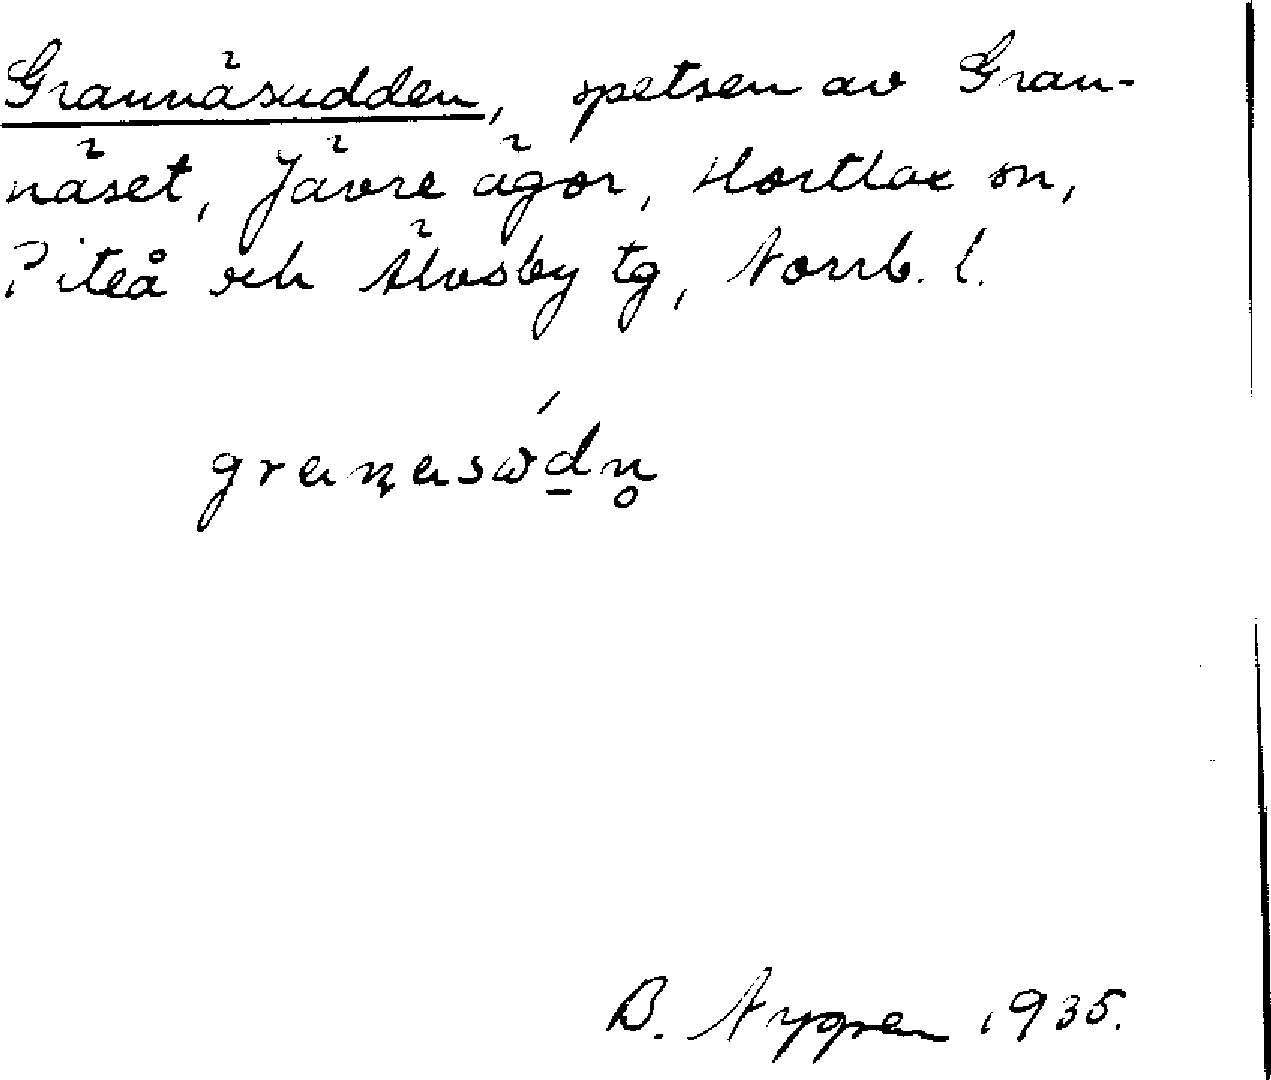 Grannäsudden, spetsen av Gran-
näset, Jävre ägor, Hortlax sn,
Piteå och Älvsby tg, Norrb. l.
B. Nygren 1935.